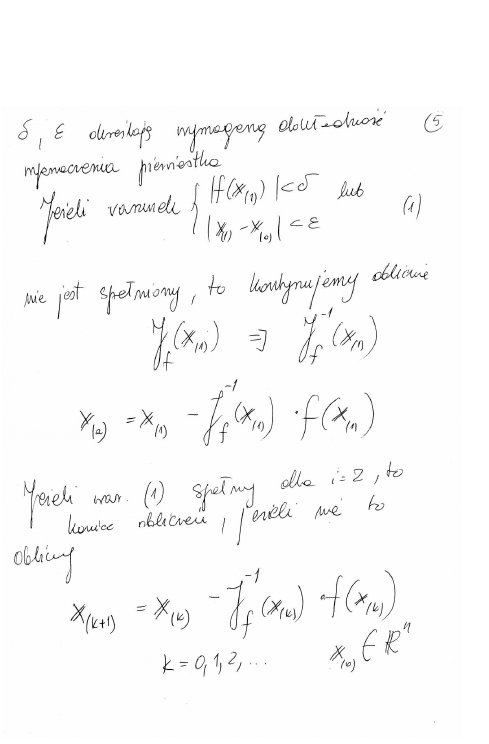 δ, ε określają wymaganą dokładność (5
wyznaczenia pierwiastka
Jeżeli warunek { |f(x₍₁₎)| < δ lub
|x₍₁₎ - x₍₀₎| < ε (1)
nie jest spełniony, to kontynujemy obliczenie
J_f(x₍₁₎) ⇒ J_f⁻¹(x₍₁₎)
x₍₂₎ = x₍₁₎ - J_f⁻¹(x₍₁₎) · f(x₍₁₎)
Jeżeli war. (1) spełniony dla i=2, to
koniec obliczeń, jeżeli nie to
obliczmy
x₍ₖ₊₁₎ = x₍ₖ₎ - J_f⁻¹(x₍ₖ₎) · f(x₍ₖ₎)
k = 0, 1, 2, ... x₍₀₎ ∈ ℝⁿ